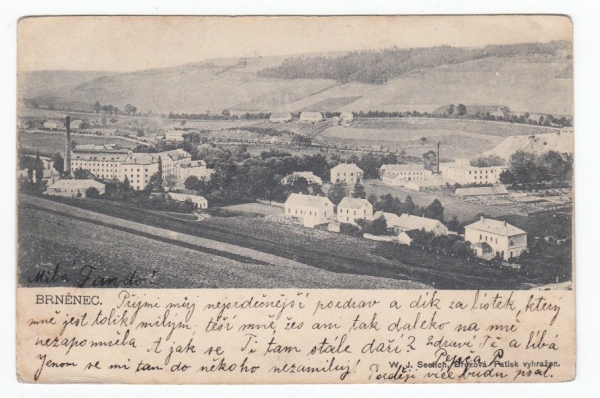 Milá Fando!
BRNĚNEC. Přijmi můj nejsrdečnější pozdrav a dík za lístek, který
mně jest tolik milým, těší mně, žes ani tak daleko na mně
nezapomněla. A jak se Ti tam stále daří? Zdraví Tě a líbá
Pepča P
W. J. Sedlich, Březová. Patisk vyhražen.
Jenom se mi tam do někoho nezamiluj! Později více budu psát.